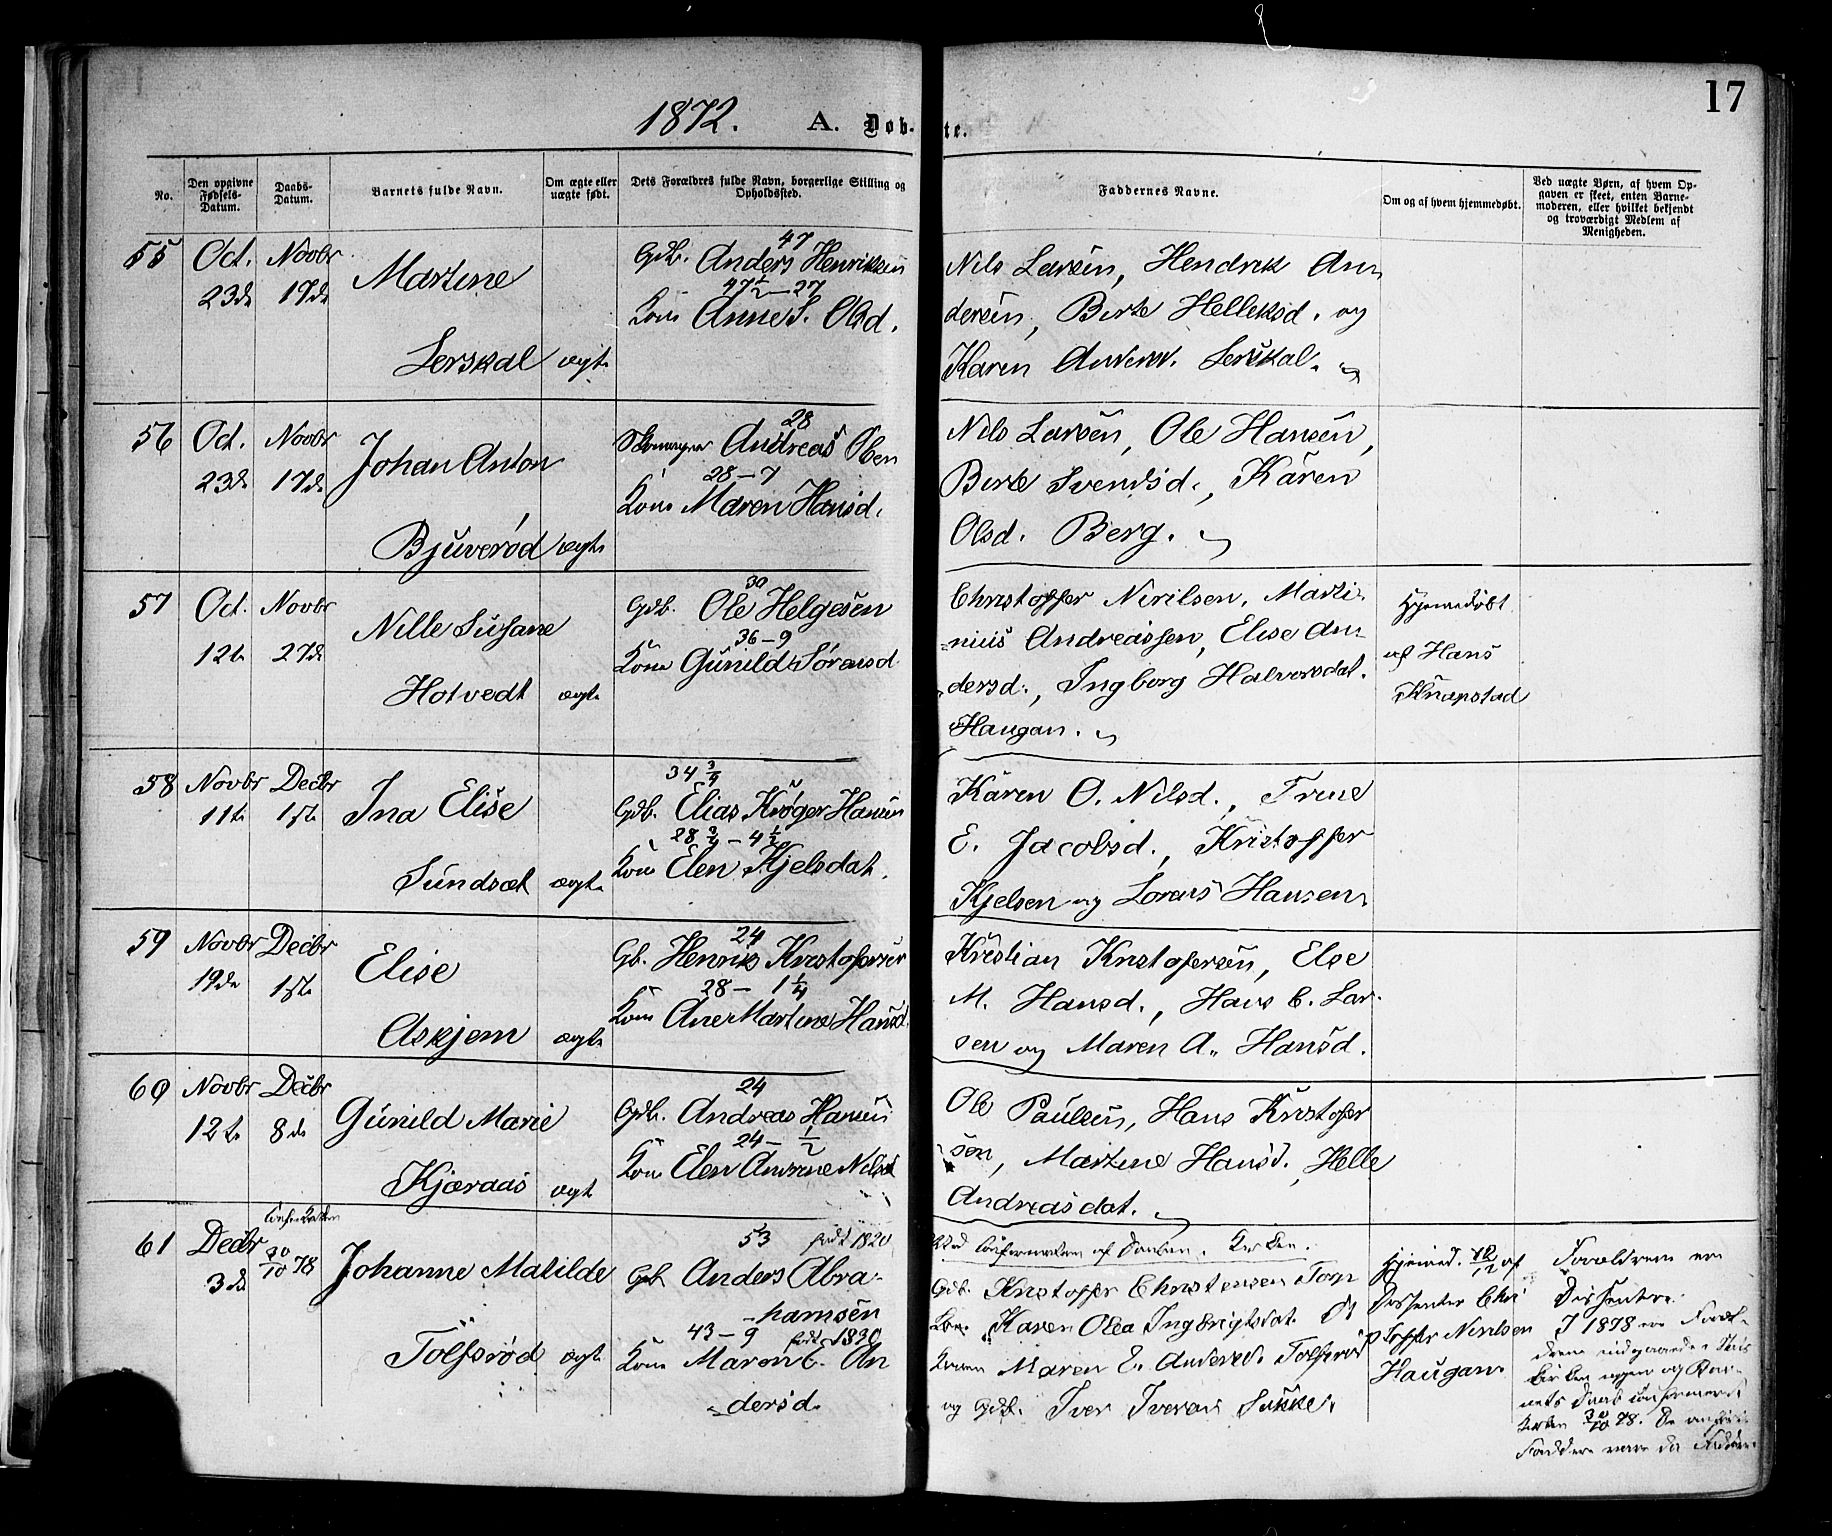 17
1872. A. Døb- te.
No.
Den opgivne Fødsels-Datum.
Daabs-Datum.
Barnets fulde Navn.
Om ægte eller uægte født.
Dets Forældres fulde Navn, borgerlige Stilling og Opholdssted.
Faddernes Navne.
Om og af hvem hjemmedøbt.
Ved uægte Børn, af hvem Op-
gaven er skeet, enten Barne-
moderen, eller hvilket bekjendt
og troværdigt Medlem af
Menigheden.
55 Oct. Novbr
23de 17de
Martine
Lerskal ægte
47
Gdb. Anders Henriksen
47½ — 27
Kone Anne S. Olsd.
Nils Larsen, Hendrik An-
dersen, Berte Helleksd. og
Karen Andersd. Lerskal.
56 Oct. Novbr
23de 17de
Johan Anton
Bjuverød ægte
28
Skomager Andreas Olsen
28 — 7
Kone Maren Hansd.
Nils Larsen, Ole Hansen,
Berte Svendsd., Karen
Olsd. Berg.
57 Oct. Novbr
12te 27de
Nille Susane
Hotvedt ægte
30
Gdb. Ole Helgesen
36 — 9
Kone Gunild Sørensd.
Christoffer Nirilsen, Marti-
nius Andreassen, Elise An-
dersd., Ingborg Halvorsdat.
Haugan.
Hjemmedøbt
af Hans
Knapstad
58 Novbr Decbr
11te 1ste
Ina Elise
Sundsæt ægte
34¾
Gdb. Elias Krøger Hansen
28¾ — 4½
Kone Elen Kjelsdat.
Karen O. Nilsd., Trine
E. Jacobsd., Kristoffer
Kjelsen og Lorens Hansen.
59 Novbr Decbr
19de 1ste
Elise
Askjem ægte
24
Gb. Henrik Kristofersen
28 — 1¼
Kone Ane Martine Hansd.
Kristian Kristofersen, Else
M. Hansd., Hans C. Lar-
sen og Maren A. Hansd.
60 Novbr Decbr
12te 8de
Gunild Marie
Kjæraas ægte
24
Gdb. Andreas Hansen
24 — ½
Kone Elen Andrine Nilsd
Ole Paulsen, Hans Kristofer
sen, Martine Hansd. Helle
Andreasdat.
61 Decbr
3de
30/10 78
Johanne Matilde
Tolfsrød ægte
53 født 1820
Gdb. Anders Abra-
hamsen
43 — 9 født 1830
Kone Maren E. An
dersd.
Ved Confirmation af Daaben i Kirken.
Gdb. Kristoffer Christensen Torp
Kone Karen Olea Ingbrigtsdat.
Konen Maren E. Andersd. Tolfsrød
og Gdb. Iver Iversen Sukke.
Hjemmed. af
Dissenter Chri
stoffer Nirilsen
Haugan.
Forældrene ere
Dissentere.
I 1878 ere Foræl-
drene indgaaede i Stats
kirken igjen og Bar-
nets Daab confirmeret i
Kirken 30/10 78. De anførte
Faddere vare da Faddere